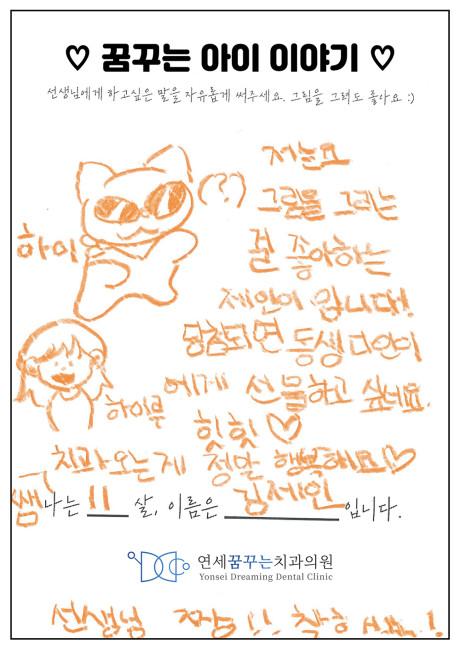 ♡ 꿈꾸는 아이 이야기 ♡
선생님에게 하고싶은 말을 자유롭게 써주세요. 그림을 그려도 좋아요 :)
저는요
(?)
그림을 그리는
하이
걸 좋아하는
제인이 입니다!
당첨되면 동생 다안이
에게 선물하고 싶네요.
하이루
힛힛♡
치과오는게 정말 행복해요!♡
쌤 나는 11 살, 이름은 김제인 입니다.
연세꿈꾸는치과의원
Yonsei Dreaming Dental Clinic
선생님 짱!! 착하